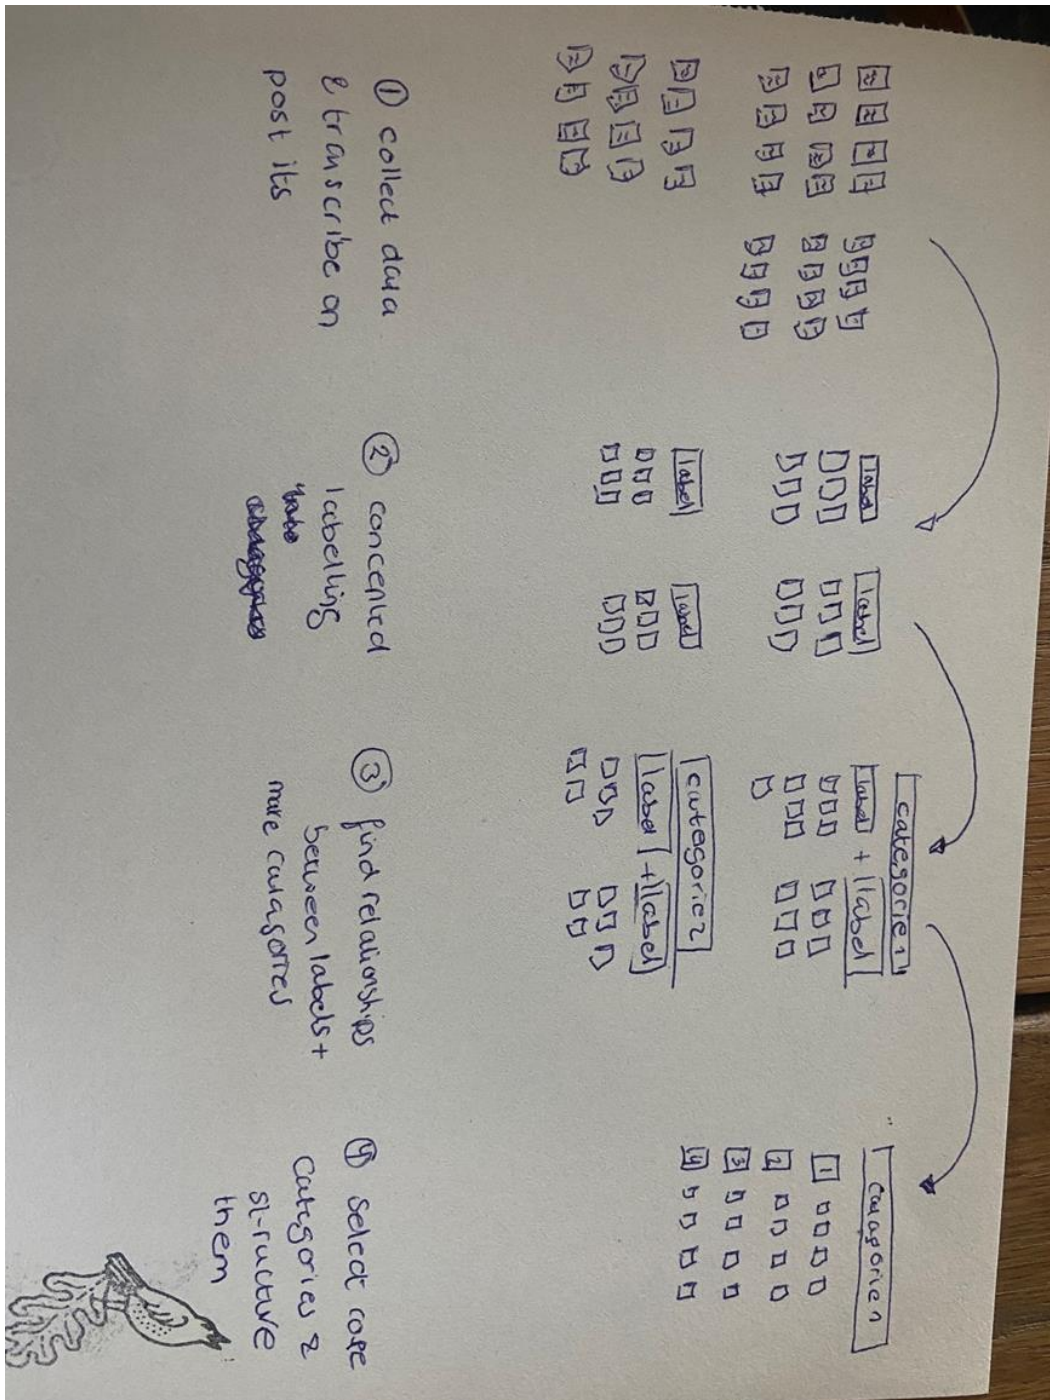 label
label
label
label
categorie 1
label + label
categorie 2
label + label
categorien
1
2
3
4
① collect data
& transcribe on
post its
② concented
labelling
③ find relationships
between labels +
make catagories
④ select core
categories &
structure
them